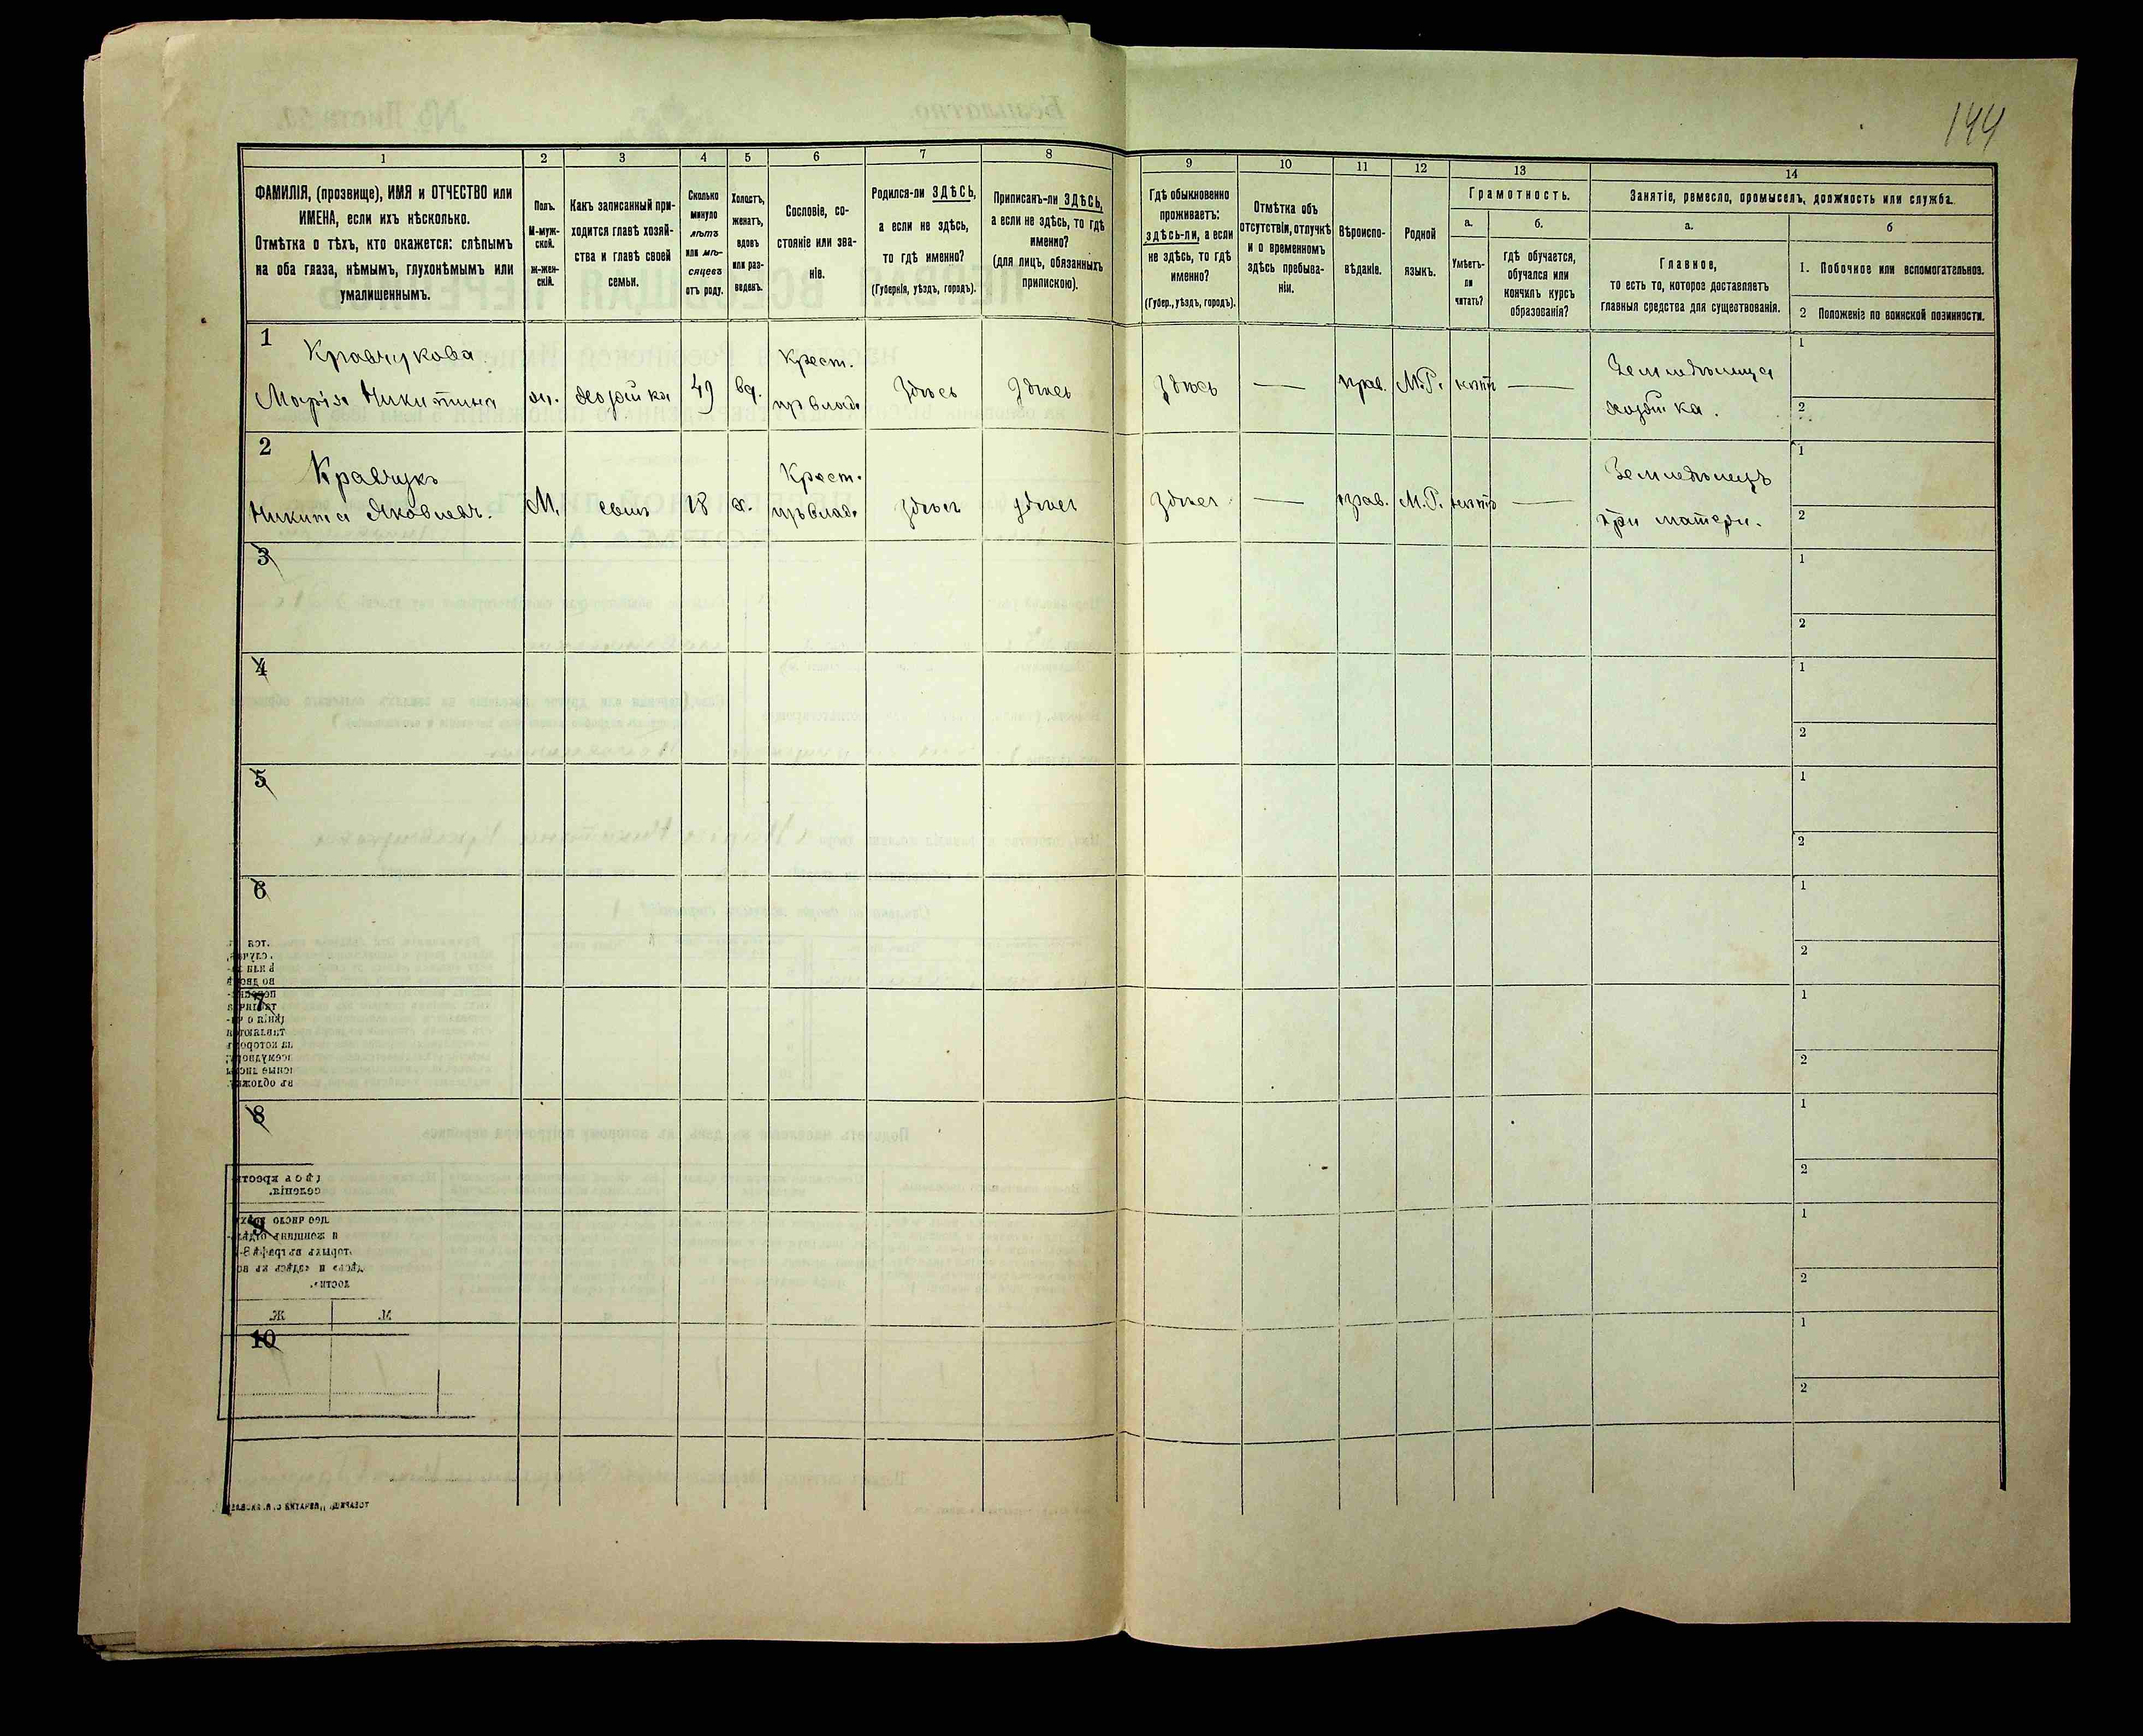 144
1 2 3 4 5 6 7 8 9 10 11 12 13 14
ФАМИЛІЯ, (прозвище), ИМЯ и ОТЧЕСТВО или
ИМЕНА, если ихъ нѣсколько.
Отмѣтка о тѣхъ, кто окажется: слѣпымъ
на оба глаза, нѣмымъ, глухонѣмымъ или
умалишеннымъ.
Полъ.
М-муж-
ской.
Ж-жен-
скій.
Какъ записанный при-
ходится главѣ хозяй-
ства и главѣ своей
семьи.
Сколько
минуло
лѣтъ
или мѣ-
сяцевъ
отъ роду.
Холостъ,
женатъ,
вдовъ
или раз-
веденъ.
Сословіе, со-
стояніе или зва-
ніе.
Родился-ли ЗДѢСЬ,
а если не здѣсь,
то гдѣ именно?
(Губернія, уѣздъ, городъ).
Приписанъ-ли ЗДѢСЬ,
а если не здѣсь, то гдѣ
именно?
(для лицъ, обязанныхъ
припискою).
Гдѣ обыкновенно
проживаетъ:
здѣсь-ли, а если
не здѣсь, то гдѣ
именно?
(Губер., уѣздъ, городъ).
Отмѣтка объ
отсутствіи, отлучкѣ
и о временномъ
здѣсь пребыва-
ніи.
Вѣроиспо-
вѣданіе.
Родной
языкъ.
Грамотность.
а.
Умѣетъ-
ли
читать?
б.
гдѣ обучается,
обучался или
кончилъ курсъ
образованія?
Занятіе, ремесло, промыселъ, должность или служба.
а.
Главное,
то есть то, которое доставляетъ
главныя средства для существованія.
б
1. Побочное или вспомогательное.
2 Положеніе по воинской повинности.
1
Кравчукова Крест. Земледѣлица 1
Марія Никитина ж. хозяйка 49 вд. из влад. Здѣсь Здѣсь Здѣсь — прав. М.Р. нѣтъ — хозяйка. 2
2
Кравчукъ Крест. Земледѣлецъ 1
Никита Яковлев. М. сынъ 18 х. изъ влад. здѣсь здѣсь Здѣсь — прав. М.Р. нѣтъ — при матери. 2
3 1
2
4 1
2
5 1
2
6 1
2
7 1
2
8 1
2
9 1
2
10 1
2